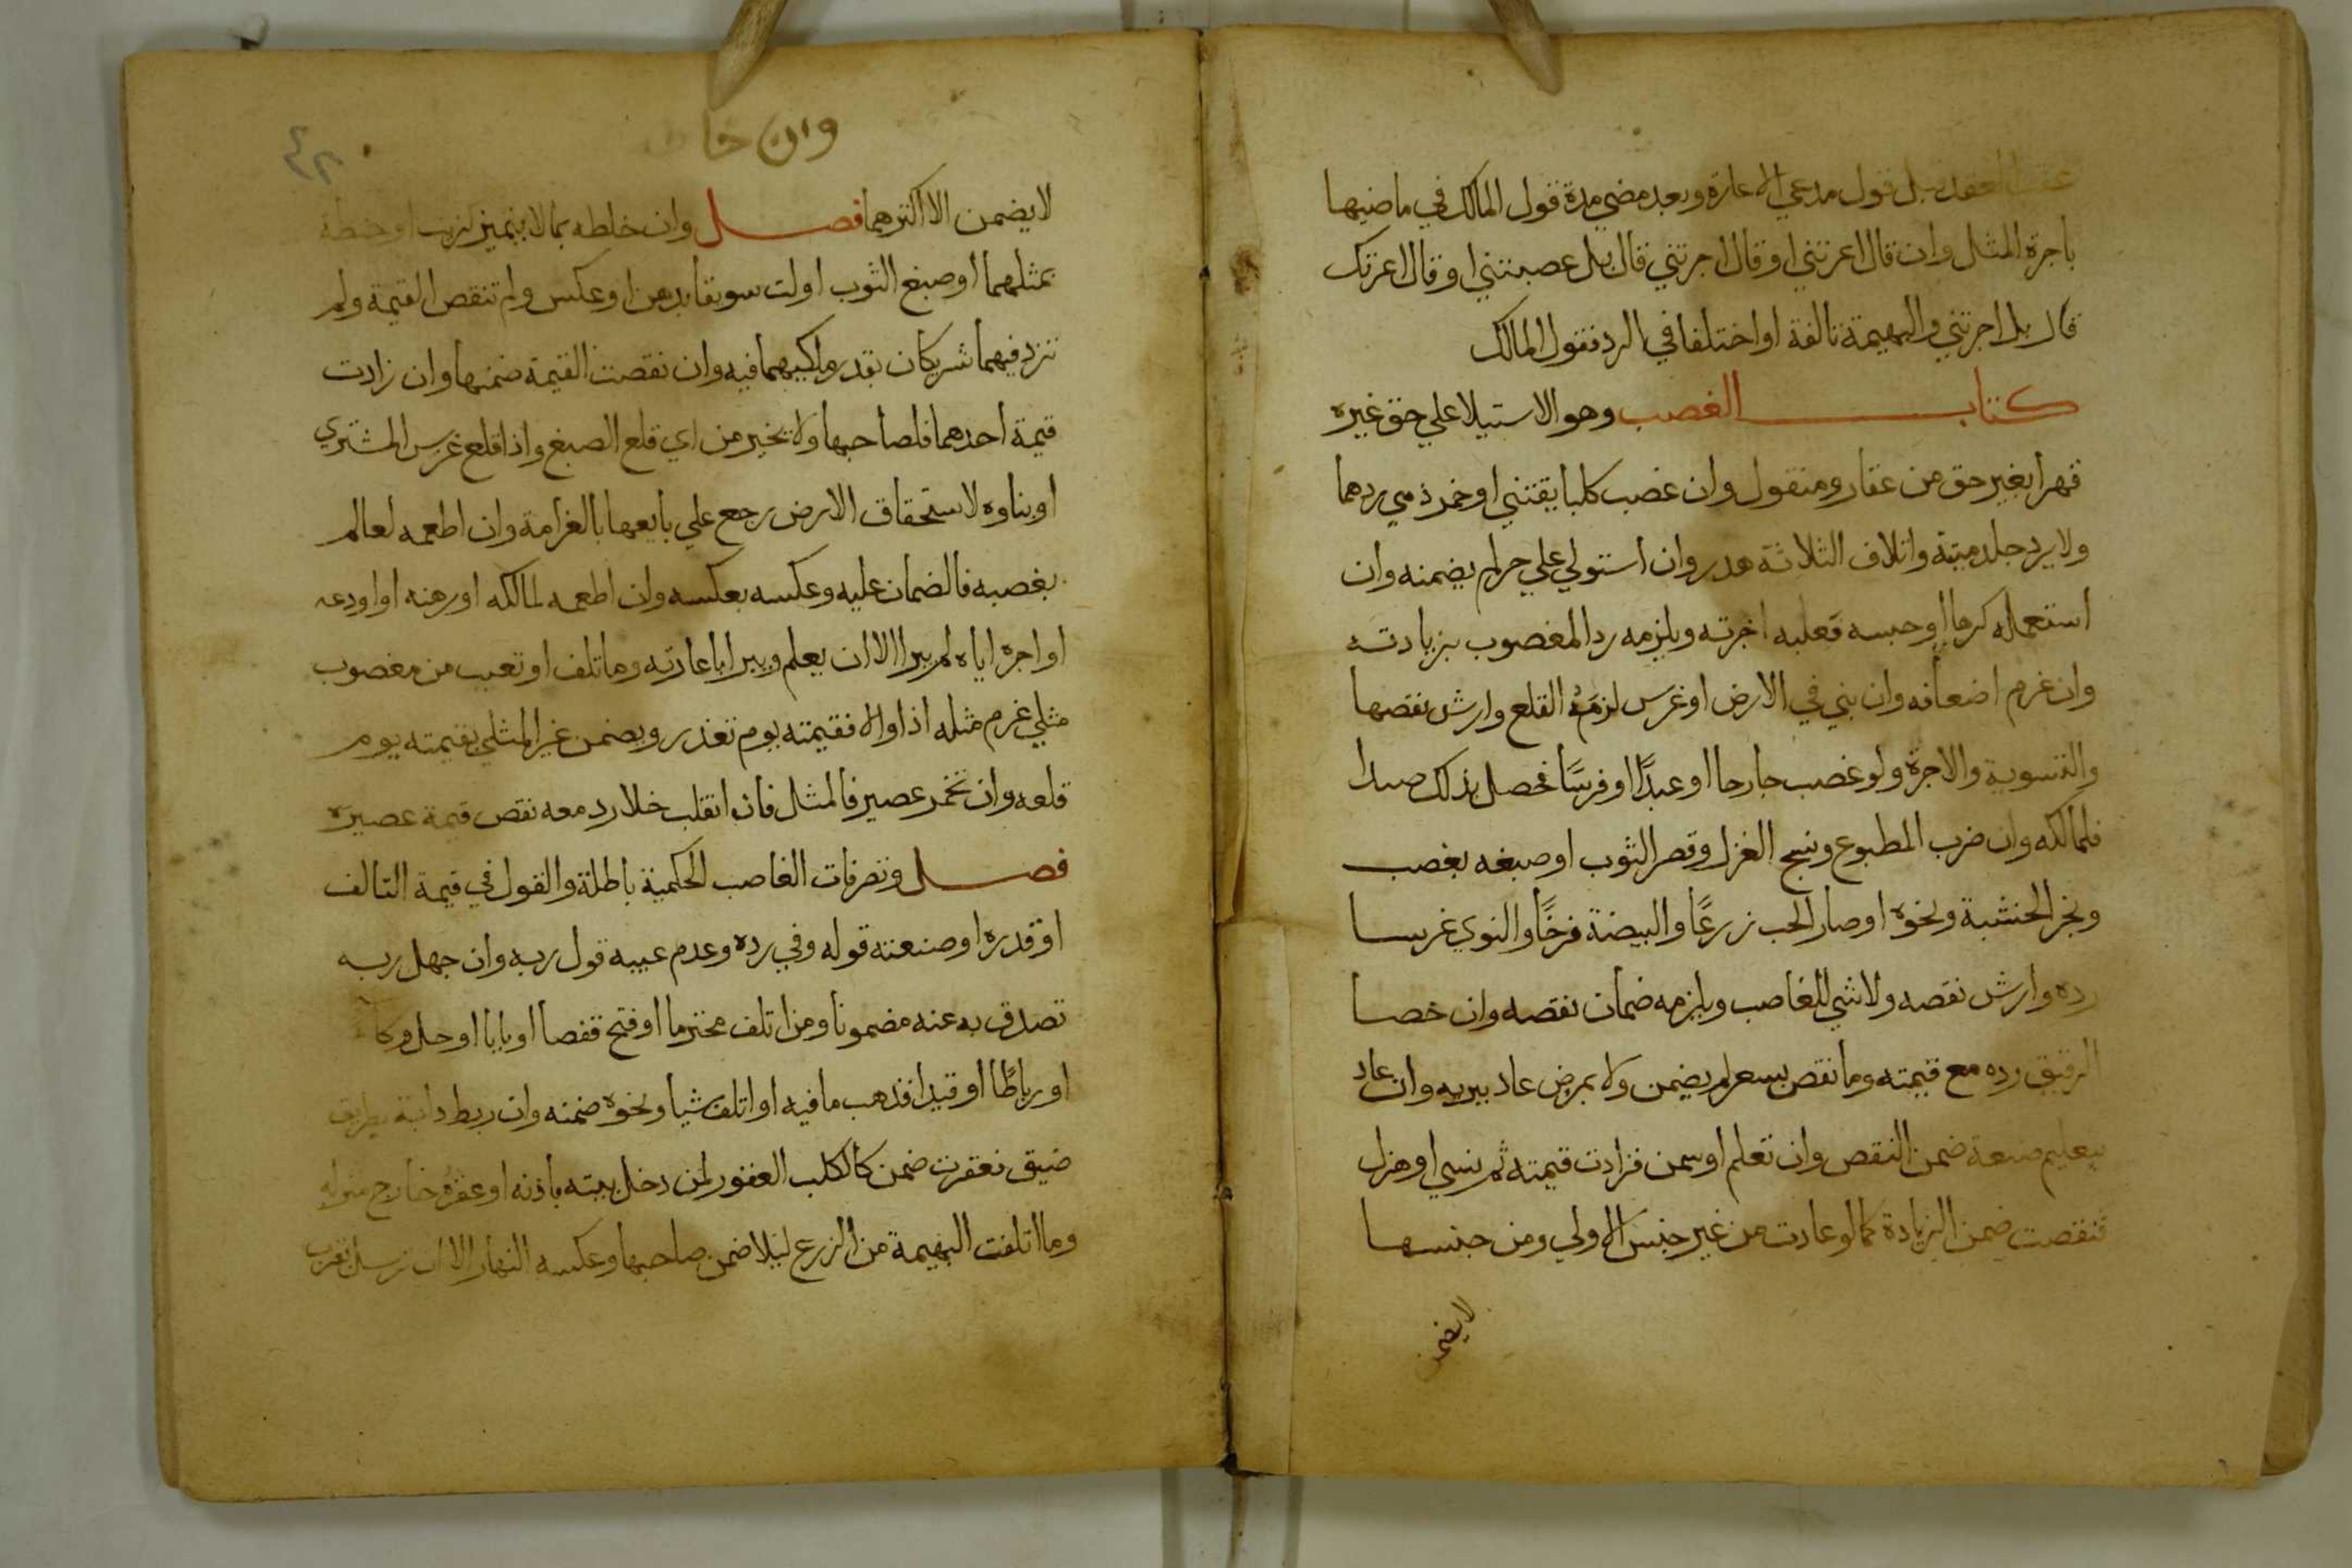 عقب العقد قبل قول مدعي الاعارة وبعد مضي مدة قول المالك في ماضيها
باجرة المثل وان قال اعرتني او قال اجرتني قال بل غصبتني او قال اعرتك
قال بل اجرتني والبهيمة تالفة او اختلفا في الرد فقول المالك
كتاب الغصب وهو الاستيلا علي حق غيره
قهرا بغير حق من عقار ومنقول وان غصب كلبا يقتني او خمر ذمي ردهما
ولا يرد جلد ميتة واتلاف الثلاثة هدر وان استولي علي حر لم يضمنه وان
استعمله كرها او حبسه فعليه اجرته ويلزمه رد المغصوب بزيادته
وان غرم اضعافه وان بني في الارض او غرس لزمه القلع وارش نقصها
والتسوية والاجرة ولو غصب جارحا او عبدًا او فرسًا فحصل بذلك صيدا
فلمالكه وان ضرب المطبوع ونسج الغزل وقصر الثوب او صبغه بغصب
ونجر الخشبة ونحوه او صار الحب زرعًا والبيضة فرخًا والنوي غرسا
رده وارش نقصه ولا شي للغاصب ويلزمه ضمان نقصه وان خصا
الرقيق رده مع قيمته وما نقص بسعر لم يضمن ولا بمرض عاد ببريه وان عاد
بتعليم صنعة ضمن النقص وان تعلم او سمن فزادت قيمته ثم نسي او هزل
فنقصت ضمن الزيادة كما لو عادت من غير جنس الاولي ومن جنسها
لا يضمن
وان خا
٤٢
لا يضمن الا اكثرهما فصل وان خلطه بما لا يتميز كزيت او حنطة
بمثلهما او صبغ الثوب او لت سويقا بدهن او عكس ولم تنقص القيمة ولم
تزد فيهما شريكان بقدر ملكيهما فيه وان نقصت القيمة ضمنها وان زادت
قيمة احدهما فلصاحبها ولا يجبر من ابي قلع الصبغ واذا قلع غرس المشتري
او بناوه لاستحقاق الارض رجع علي بايعها بالغرامة وان اطعمه لعالم
بغصبه فالضمان عليه وعكسه بعكسه وان اطعمه لمالكه او رهنه او اودعه
او اجره اياه لم يبرا الا ان يعلم ويبرا باعارته وما تلف او تعيب من مغصوب
مثلي غرم مثله اذا والا فقيمته يوم تعذر ويضمن غير المثلي بقيمته يوم
قلعه وان تخمر عصير فالمثل فان انقلب خلا رد معه نقص قيمة عصيره
فصل وتصرفات الغاصب الحكمية باطلة والقول في قيمة التالف
او قدره او صنعته قوله وفي رده وعدم عيبه قول ربه وان جهل ربه
تصدق به عنه مضمونا ومن اتلف محترما او فتح قفصا او بابا او حل وكا
او رباطًا او قيدا فذهب ما فيه او اتلف شيا ونحوه ضمنه وان ربط دابة بطريق
ضيق فعقرت ضمن كالكلب العقور لمن دخل بيته باذنه او عقره خارج منزله
وما اتلفت البهيمة من الزرع ليلا ضمن صاحبها وعكسه النهار الا ان ترسل بقرب